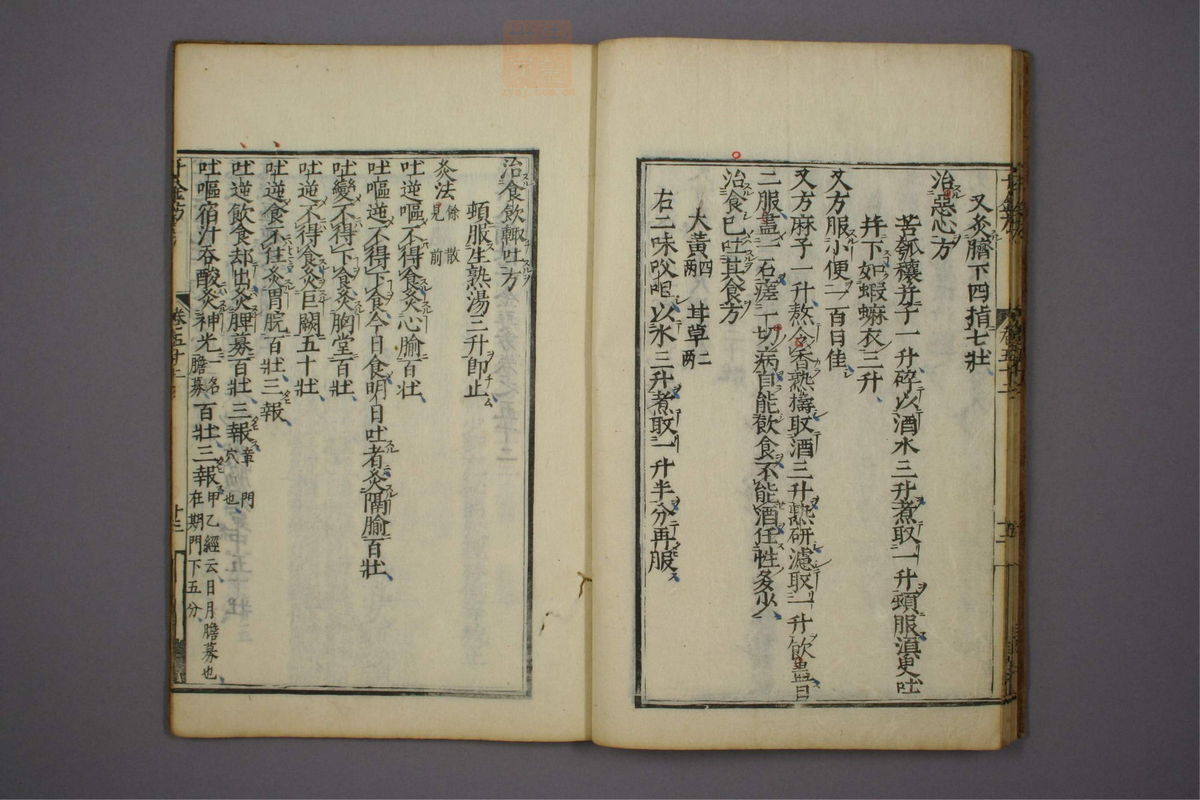 又灸臍下四指七壯
治惡心方
苦瓠穰并子一升碎以酒水三升煮取一升頓服湏臾吐
井下如蝦䗫衣三升
又方服小便一百日佳
又方麻子一升熬令香熟擣取酒三升熱研濾取一升飲盡日
二服盡一石瘥一切病自能飲食不能酒任性多少
治食已吐其食方
大黃四兩 甘草二兩
右二味㕮咀以水三升煮取一升半分再服
治食飲輒吐方
頓服生熟湯三升即止
灸法餘散見前
吐逆嘔不得食灸心腧百壯
吐嘔逆不得下食今日食明日吐者灸隔腧百壯
吐變不得下食灸胸堂百壯
吐逆不得食灸巨闕五十壯
吐逆食不住灸胃脘百壯三報
吐逆飲食却出灸脾募百壯三報章門穴也
吐嘔宿汁吞酸灸神光一名膽募百壯三報甲乙經云日月膽募也在期門下五分